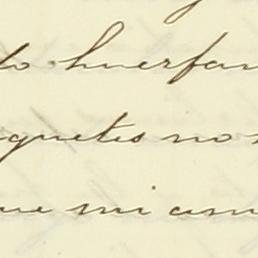 lo huerfan
quetes no
ue mi am